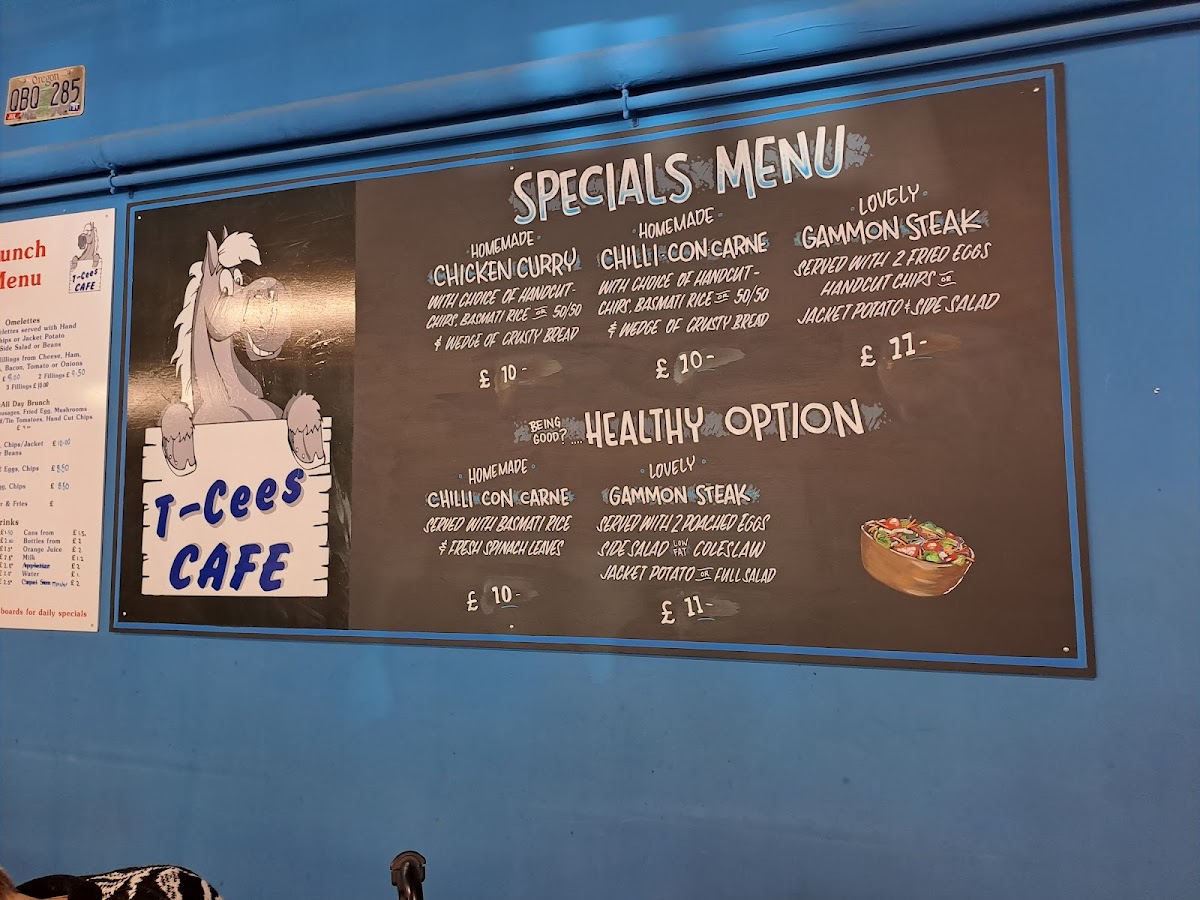 Oregon
QBQ 285
unch
Menu
T-Cees
CAFE
Omelettes
elettes served with Hand
hips or Jacket Potato
Side Salad or Beans
illings from Cheese, Ham,
, Bacon, Tomato or Onions
£ 9.00 2 Fillings £ 9.50
3 Fillings £ 10.00
All Day Brunch
usages, Fried Egg, Mushrooms
Tomatoes, Hand Cut Chips
, Chips/Jacket £ 10.00
r Beans
Eggs, Chips £ 8.50
gg, Chips £ 8.50
r & Fries £
rinks
Cans from
Bottles from £2
Orange Juice £2
Milk
Water £1
boards for daily specials
T-Cees
CAFE
SPECIALS MENU
HOMEMADE
CHICKEN CURRY
WITH CHOICE OF HANDCUT-
CHIPS, BASMATI RICE OR 50/50
& WEDGE OF CRUSTY BREAD
£ 10-
HOMEMADE
CHILLI CON CARNE
WITH CHOICE OF HANDCUT-
CHIPS, BASMATI RICE OR 50/50
& WEDGE OF CRUSTY BREAD
£ 10-
LOVELY
GAMMON STEAK
SERVED WITH 2 FRIED EGGS
HANDCUT CHIPS OR
JACKET POTATO & SIDE SALAD
£ 11-
BEING GOOD? .... HEALTHY OPTION
HOMEMADE
CHILLI CON CARNE
SERVED WITH BASMATI RICE
& FRESH SPINACH LEAVES
£ 10-
LOVELY
GAMMON STEAK
SERVED WITH 2 POACHED EGGS
SIDE SALAD LOW FAT COLESLAW
JACKET POTATO OR FULL SALAD
£ 11-